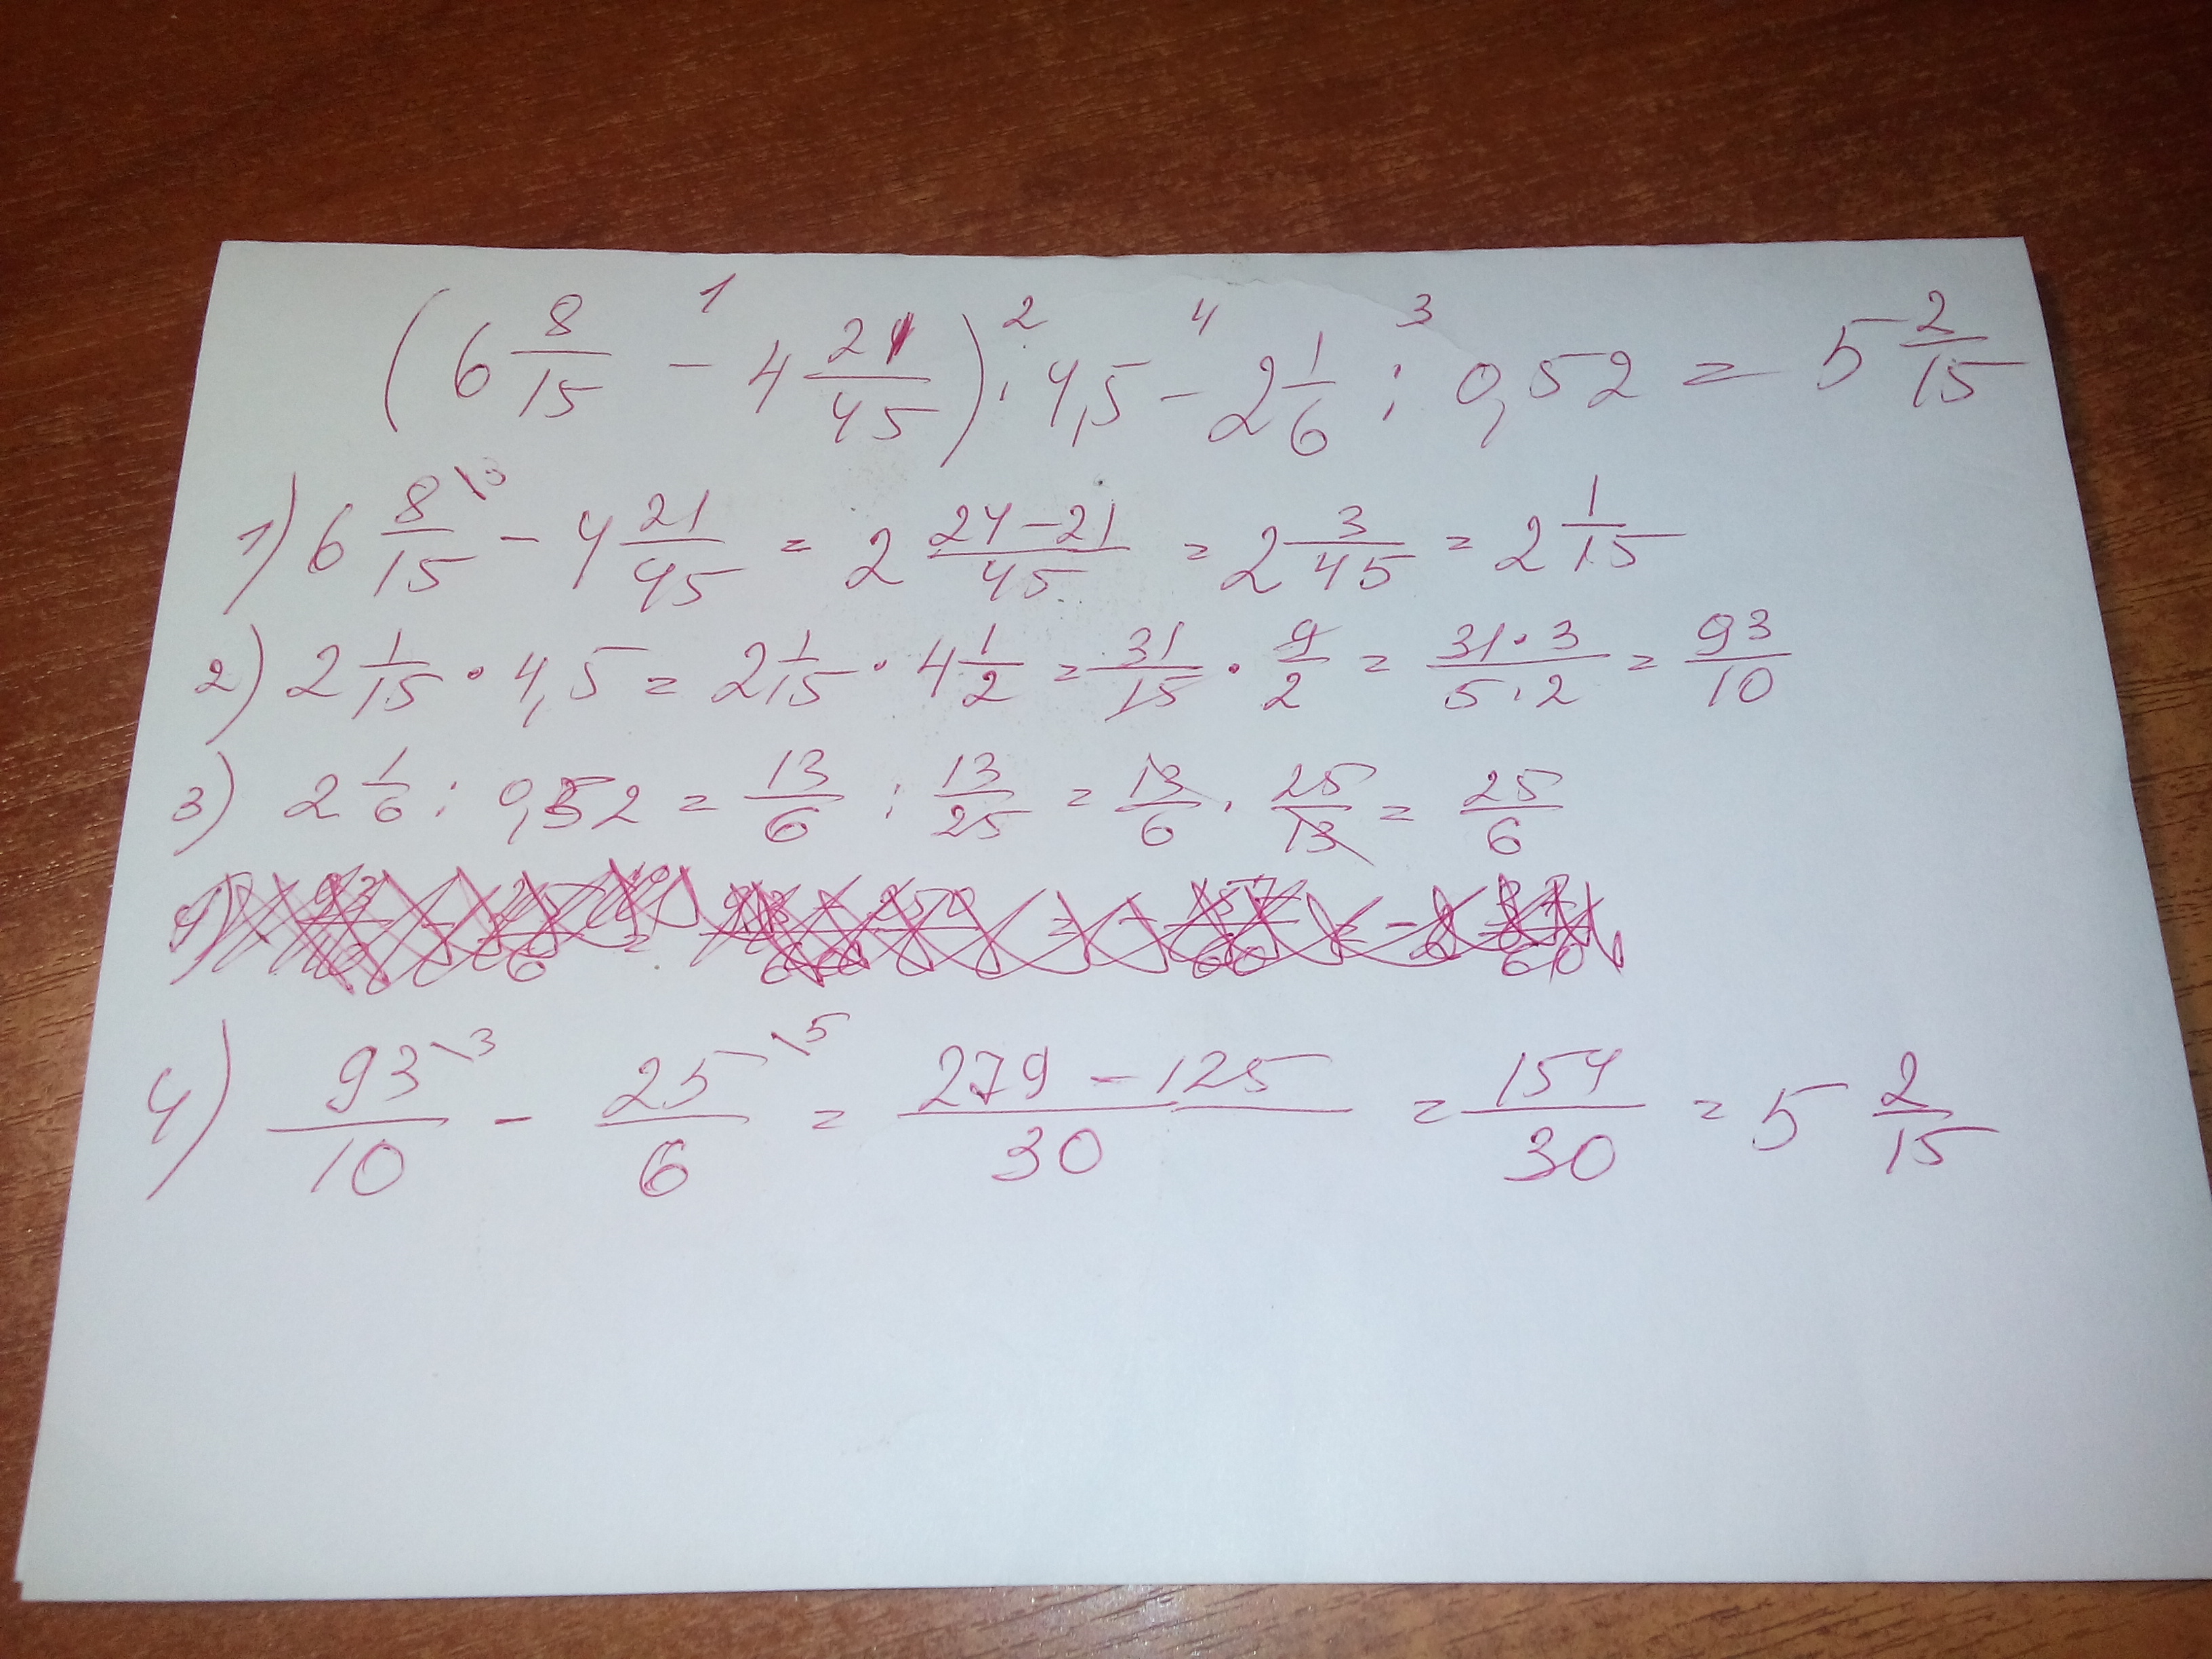 1 2 4 3
(6 8/15 - 4 21/45) · 4,5 - 2 1/6 : 0,52 = 5 2/15
1) 6 8/15 \3 - 4 21/45 = 2 24-21/45 = 2 3/45 = 2 1/15
2) 2 1/15 · 4,5 = 2 1/15 · 4 1/2 = 31/15 · 9/2 = 31·3/5·2 = 93/10
3) 2 1/6 : 0,52 = 13/6 : 13/25 = 13/6 · 25/13 = 25/6
4) 93/10 \3 - 25/6 \5 = 279-125/30 = 154/30 = 5 2/15